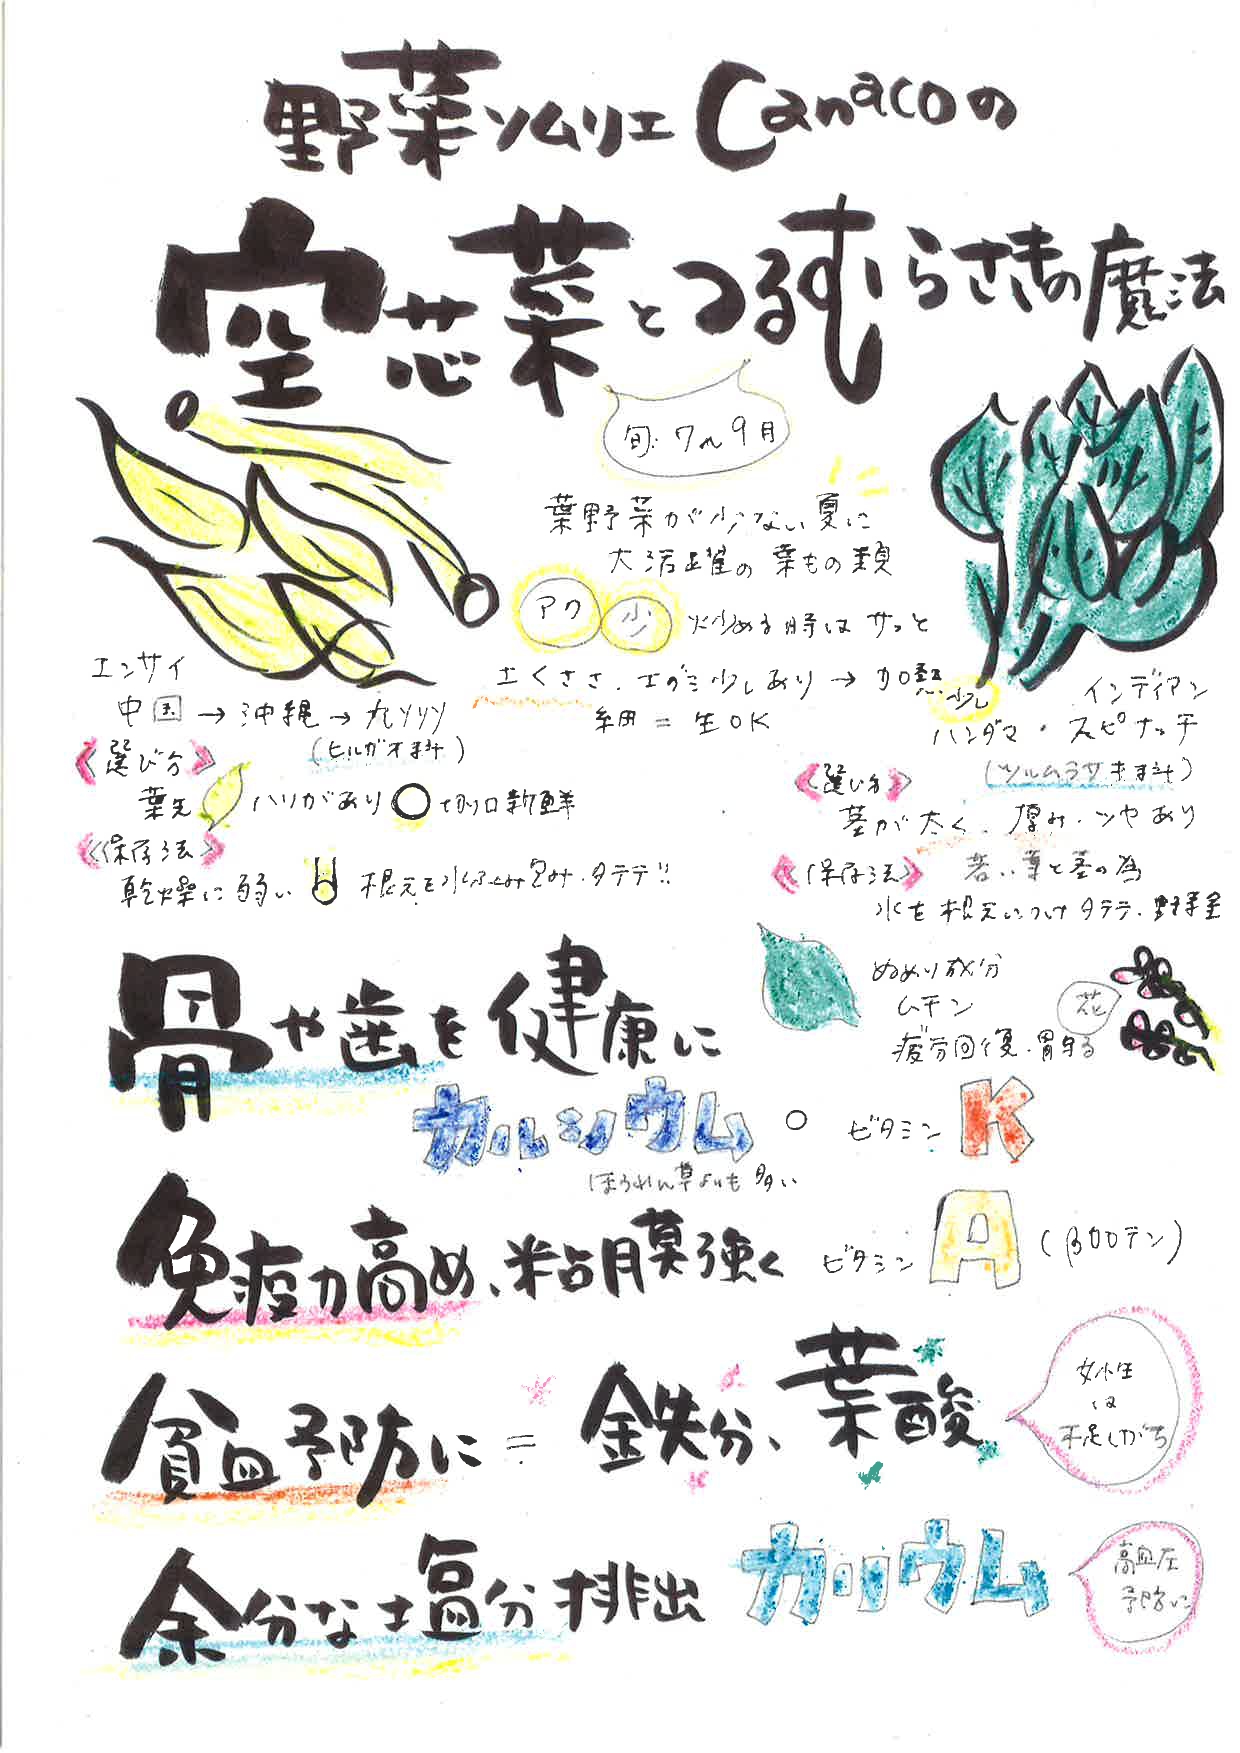 野菜ソムリエCanacoの
空芯菜とつるむらさきの魔法
旬:7〜9月
葉野菜が少ない夏に
大活躍の葉もの類
アク 少 炒める時はサッと
土くささ、エグミ少しあり→加熱
細=生OK
エンサイ
中国→沖縄→九州
(ヒルガオ科)
《選び方》
葉先 ハリがあり 切り口新鮮
《保存法》
乾燥に弱い 根元を水ふくみ包み、タテテ!!
少し
インディアン
ハンダマ・スピナッチ
(ツルムラサキ科)
《選び方》
茎が太く、厚み・ツヤあり
《保存法》 若い葉と茎の為
水を根元につけタテテ、野菜室
ぬめり成分
ムチン
疲労回復、胃守る
花
骨や歯を健康に
カルシウム
ビタミンK
ほうれん草よりも多い
免疫力高め、粘膜強く ビタミンA(βカロテン)
貧血予防に=鉄分、葉酸
女性
は
不足しがち
余分な塩分排出 カリウム
高血圧
予防に